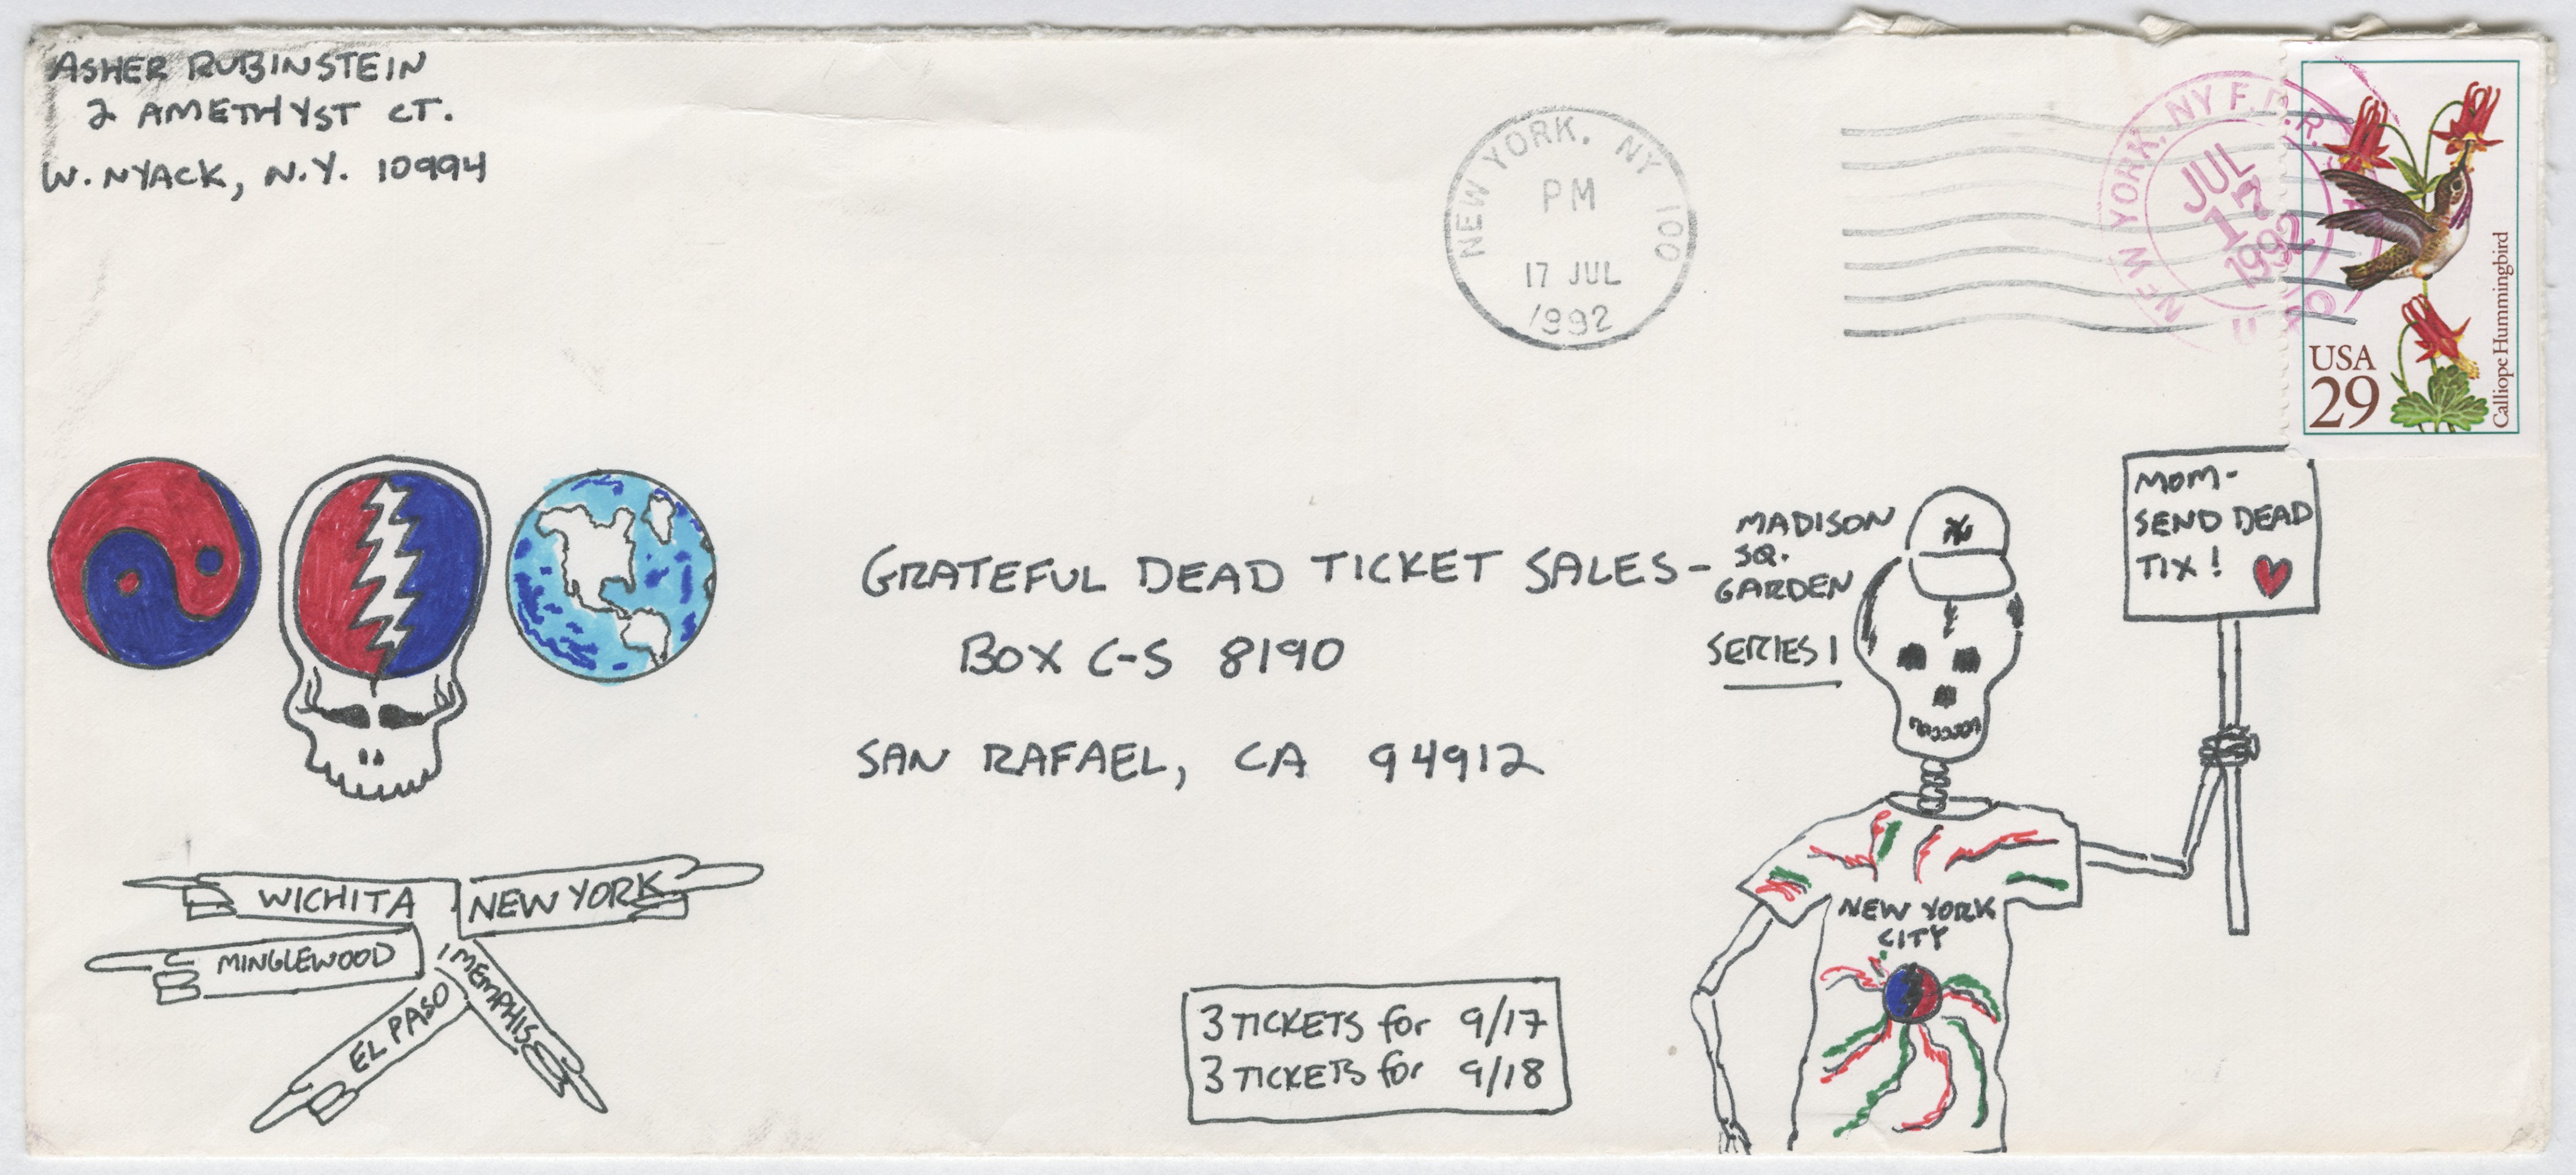 ASHER RUBINSTEIN
2 AMETHYST CT.
W. NYACK, N.Y. 10994
NEW YORK, NY 100
PM
17 JUL
1992
NEW YORK, NY F.D.R.
JUL
17
1992
USA
29
Calliope Hummingbird
GRATEFUL DEAD TICKET SALES-
BOX C-S 8190
SAN RAFAEL, CA 94912
MADISON
SQ.
GARDEN
SERIES 1
MOM-
SEND DEAD
TIX!
WICHITA
NEW YORK
MINGLEWOOD
MEMPHIS
EL PASO
3 TICKETS for 9/17
3 TICKETS for 9/18
NEW YORK
CITY